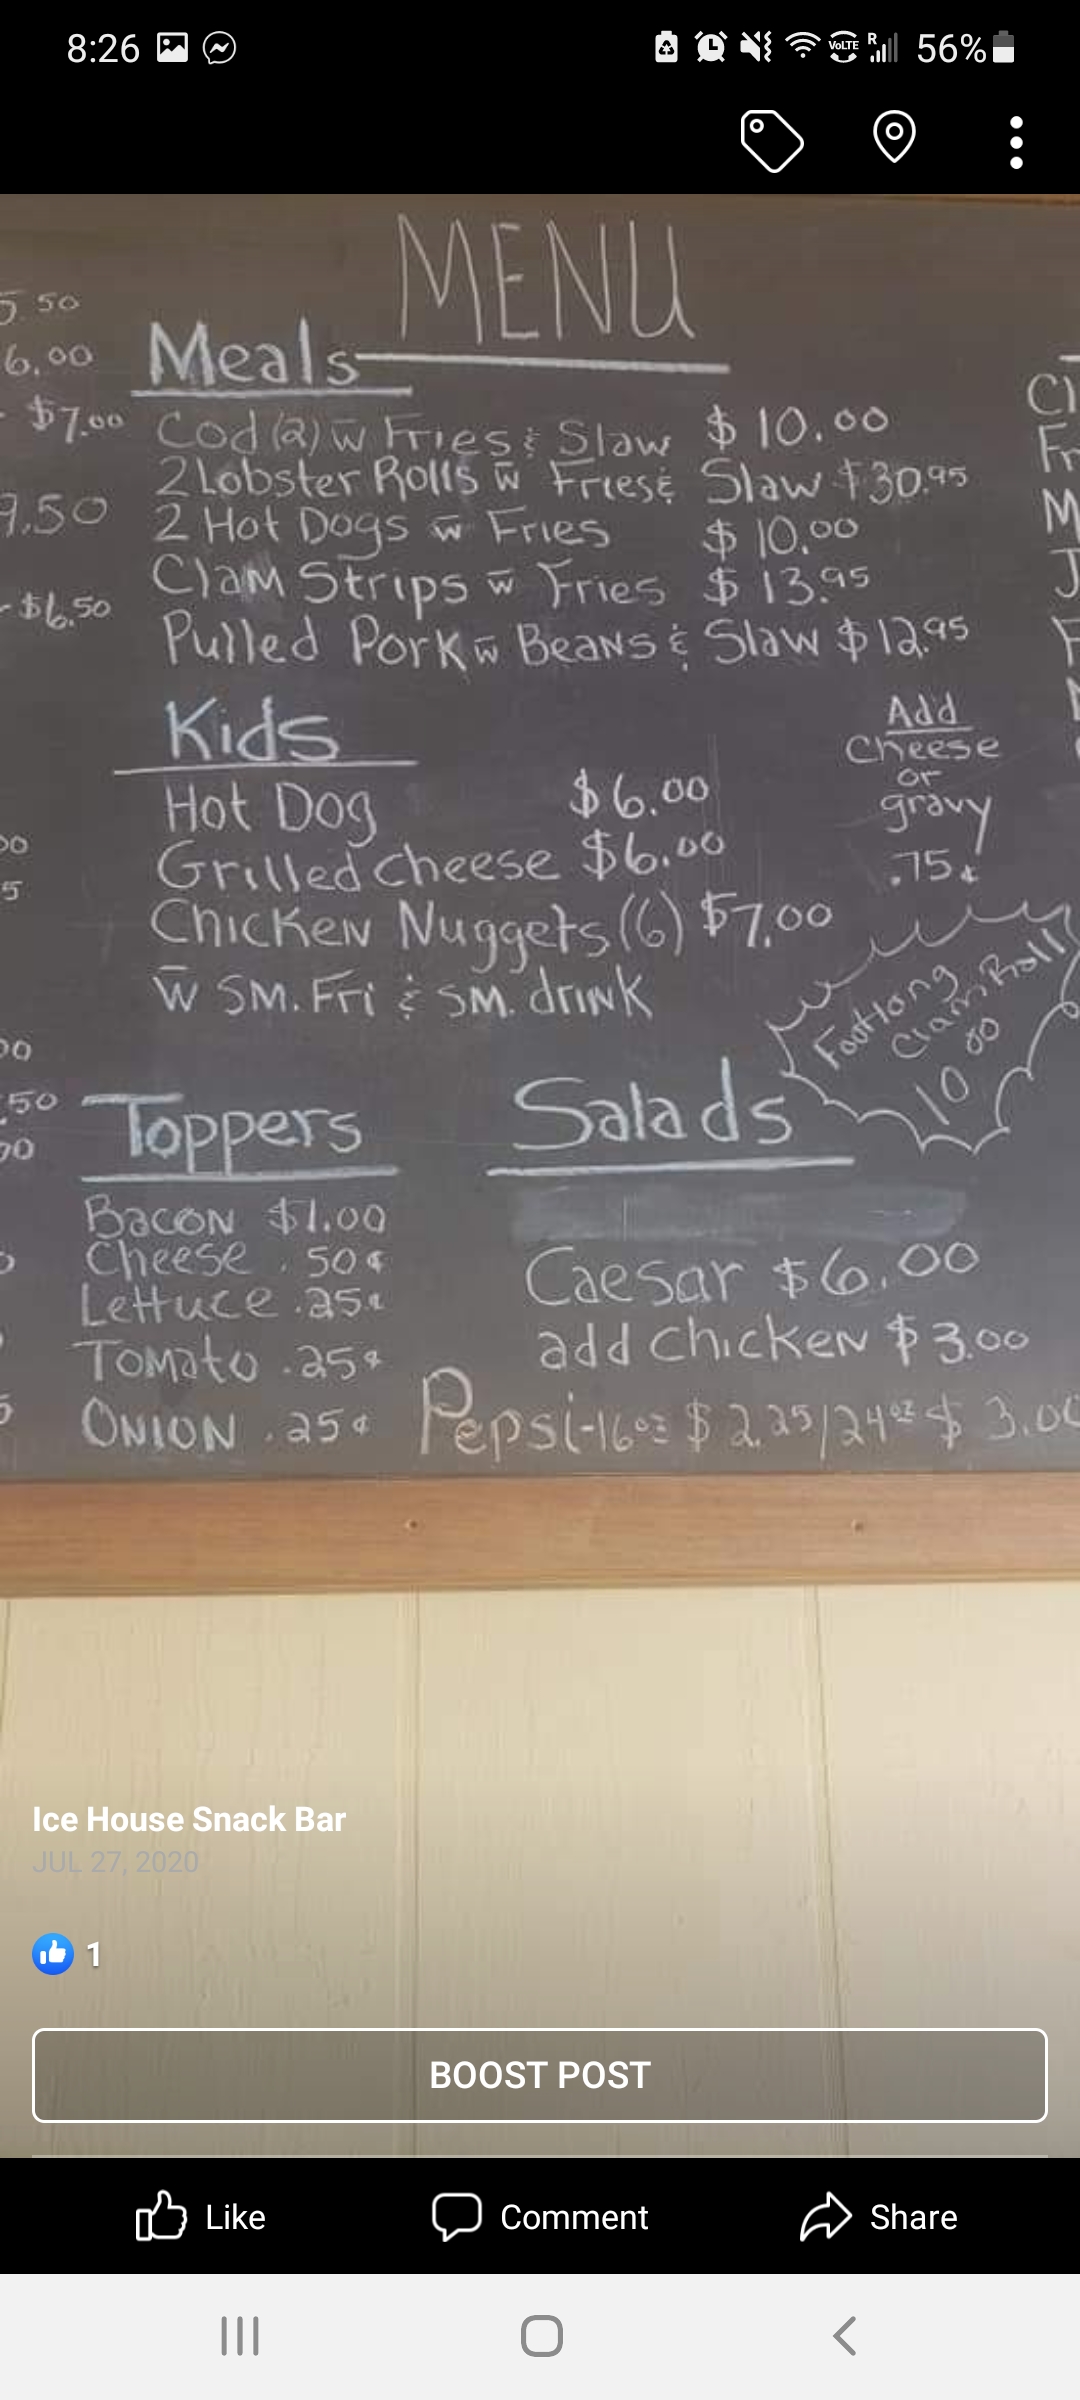 8:26
VoLTE R 56%
MENU
5.50
6.00
- $7.00
9.50
- $6.50
Meals
Cod (2) w̄ Fries & Slaw $10.00
2 Lobster Rolls w̄ Fries & Slaw $30.95
2 Hot Dogs w̄ Fries $10.00
Clam Strips w̄ Fries $13.95
Pulled Pork w̄ Beans & Slaw $12.95
Kids
Hot Dog $6.00
Grilled Cheese $6.00
Chicken Nuggets (6) $7.00
w̄ SM. Fri & SM. drink
Add
Cheese
or
gravy
.75¢
Footlong
Clam Roll
10 00
Toppers
Bacon $1.00
Cheese .50¢
Lettuce .25¢
Tomato .25¢
Onion .25¢
Salads
Caesar $6.00
add Chicken $3.00
Pepsi-16oz $2.25/24oz $3.00
Ice House Snack Bar
JUL 27, 2020
1
BOOST POST
Like Comment Share